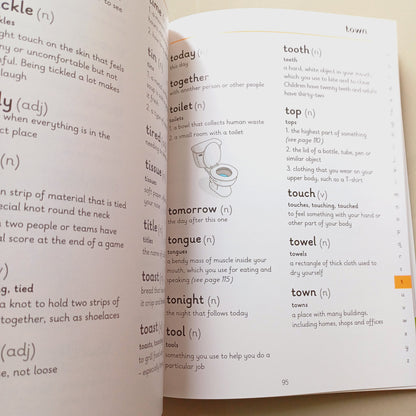 ckle (n)
kles
ght touch on the skin that feels
ny or uncomfortable but not
ful. Being tickled a lot makes
laugh
dy (adj)
when everything is in the
ct place
(n)
n strip of material that is tied
pecial knot round the neck
two people or teams have
al score at the end of a game
(v)
ng, tied
a knot to hold two strips of
together, such as shoelaces
(adj)
e, not loose
to see
tired
tissue
tissues
soft paper
your nose
title (n)
titles
the name of
toast (n)
bread that
it is crisp and
toast (v)
toasts, toasting
to grill food
- especially
town
today (n)
this day
together
with another person or other people
toilet (n)
toilets
1. a bowl that collects human waste
2. a small room with a toilet
tomorrow (n)
the day after this one
tongue (n)
tongues
a bendy mass of muscle inside your
mouth, which you use for eating and
speaking (see page 115)
tonight (n)
the night that follows today
tool (n)
tools
something you use to help you do a
particular job
tooth (n)
teeth
a hard, white object in your mouth,
which you use to bite and to chew.
Children have twenty teeth and adults
have thirty-two
top (n)
tops
1. the highest part of something
(see page 110)
2. the lid of a bottle, tube, pen or
similar object
3. clothing that you wear on your
upper body, such as a T-shirt
touch (v)
touches, touching, touched
to feel something with your hand or
other part of your body
towel (n)
towels
a rectangle of thick cloth used to
dry yourself
town (n)
towns
a place with many buildings,
including homes, shops and offices
95
n
o
p
q
r
s
t
u
v
w
x
y
z